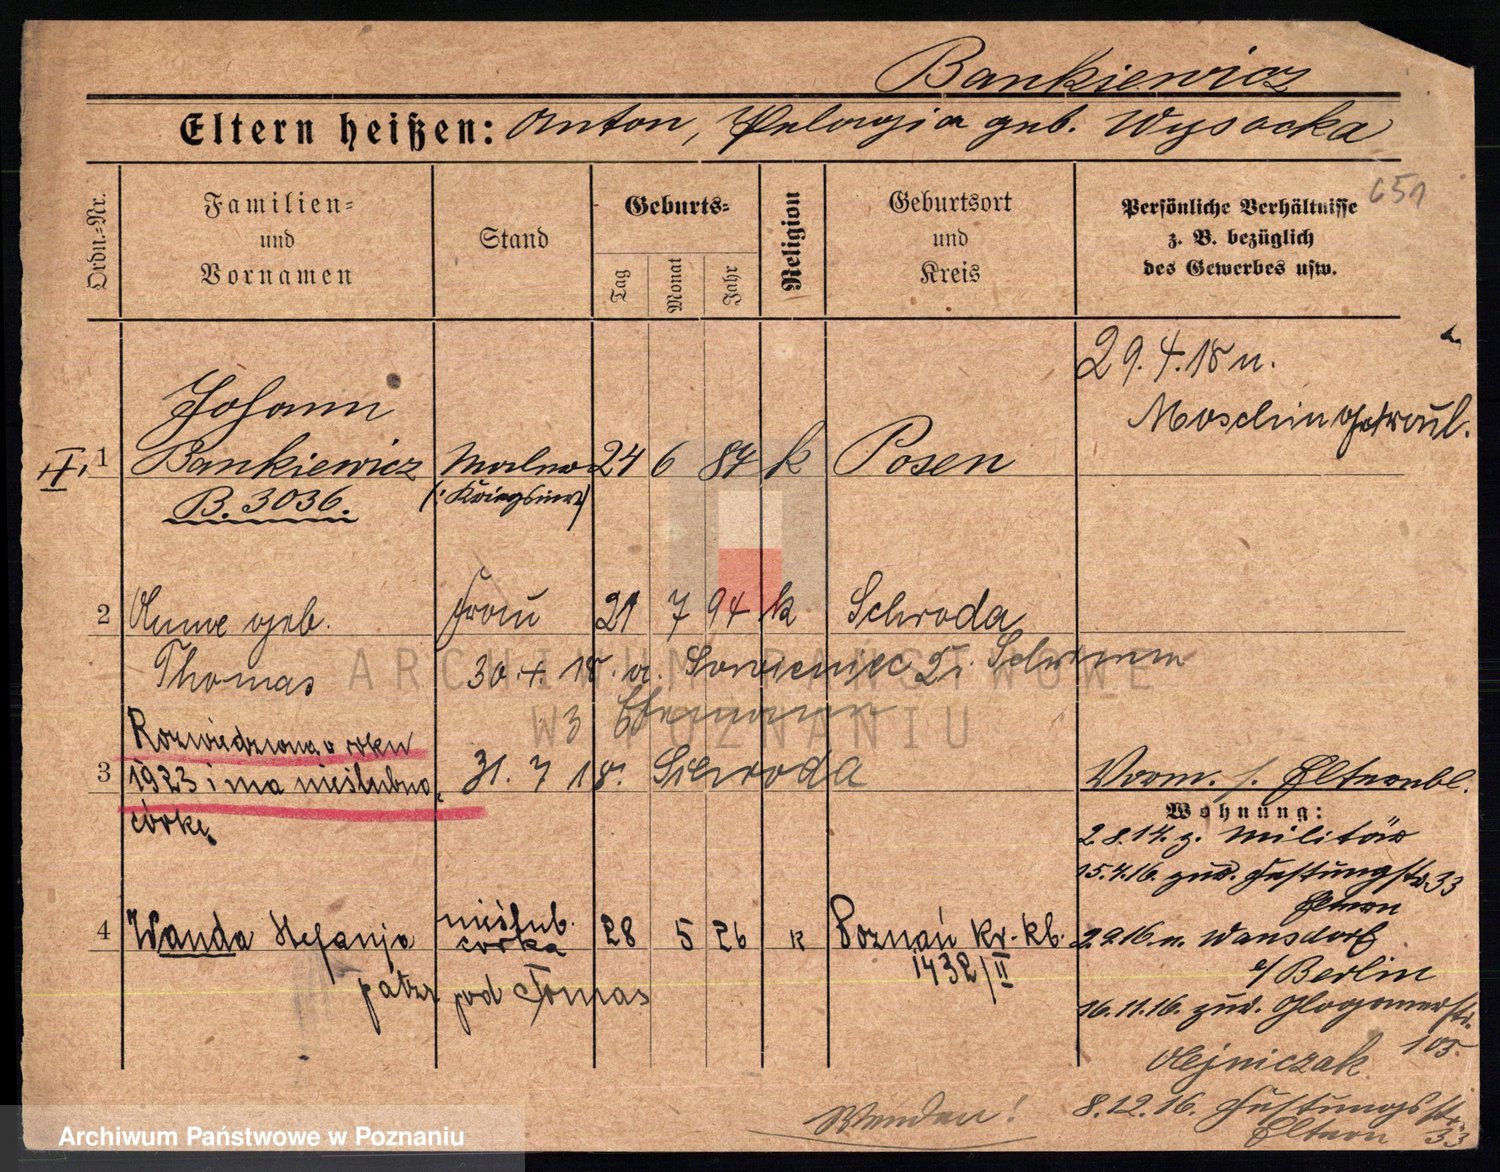 Bankiewicz
Eltern heißen: Anton, Pelagia geb. Wysocka
651
Ordn.-Nr.
Familien-
und
Vornamen
Stand
Geburts-
Tag
Monat
Jahr
Religion
Geburtsort
und
Kreis
Persönliche Verhältnisse
z. B. bezüglich
des Gewerbes usw.
29.4.18 n.
Moschin getraut.
Johann
II. 1 Bankiewicz Maler 24 6 87 k Posen
B. 3036.
2 Anne geb. Frau 21 7 94 k Schroda
Thomas 30.4.18. a. Schrimm
Rozwiedziona w roku
3 1923 i ma nieślubną 31. 7 18. Schroda
córkę
Vorm. s. Elternbl.
Wohnung:
2.8.14. z. Militär
15.4.16. zur. Festungstr. 33
Eltern
4 Wanda Stefanja nieślub. córka 28 5 26 k Poznań kr. kb.
1432/II
patrz pod Tomas
2.9.16 n. Wansdorf
b/Berlin
16.11.16. zur. Glogauerstr.
105.
Olejniczak
8.12.16. Festungsstr.
Eltern 33
Wenden!
ARCHIWUM PAŃSTWOWE
W POZNANIU
Archiwum Państwowe w Poznaniu